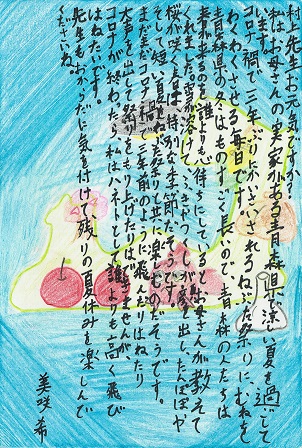 村上先生お元気ですか？
私はお母さんの実家がある青森県で涼しい夏を過ごして
います。コロナ禍で三年ぶりにかいさいされるねぶた祭りに、むねを
わくわくさせる毎日です。
青森県の冬はものすごく長いので、青森の人たちは
春が来るのを誰よりも心待ちにしているとお母さんが教えて
くれました。雪が溶けて、ふきのとうやつくしが顔を出し、たんぽぽや
桜が咲く春は特別な季節だそうです。
そして短い夏をねぶた祭りと共に楽しむのだそうです。
まだまだコロナ禍で三年前のように飛んだりはねたり
大声を出して祭りをもり上げたりは、できませんが
コロナが終わったら私はハネトとして誰よりも高く飛び
はねたいです。
先生もおからだに気を付けて、残りの夏休みを楽しんで
くださいね。
美咲希